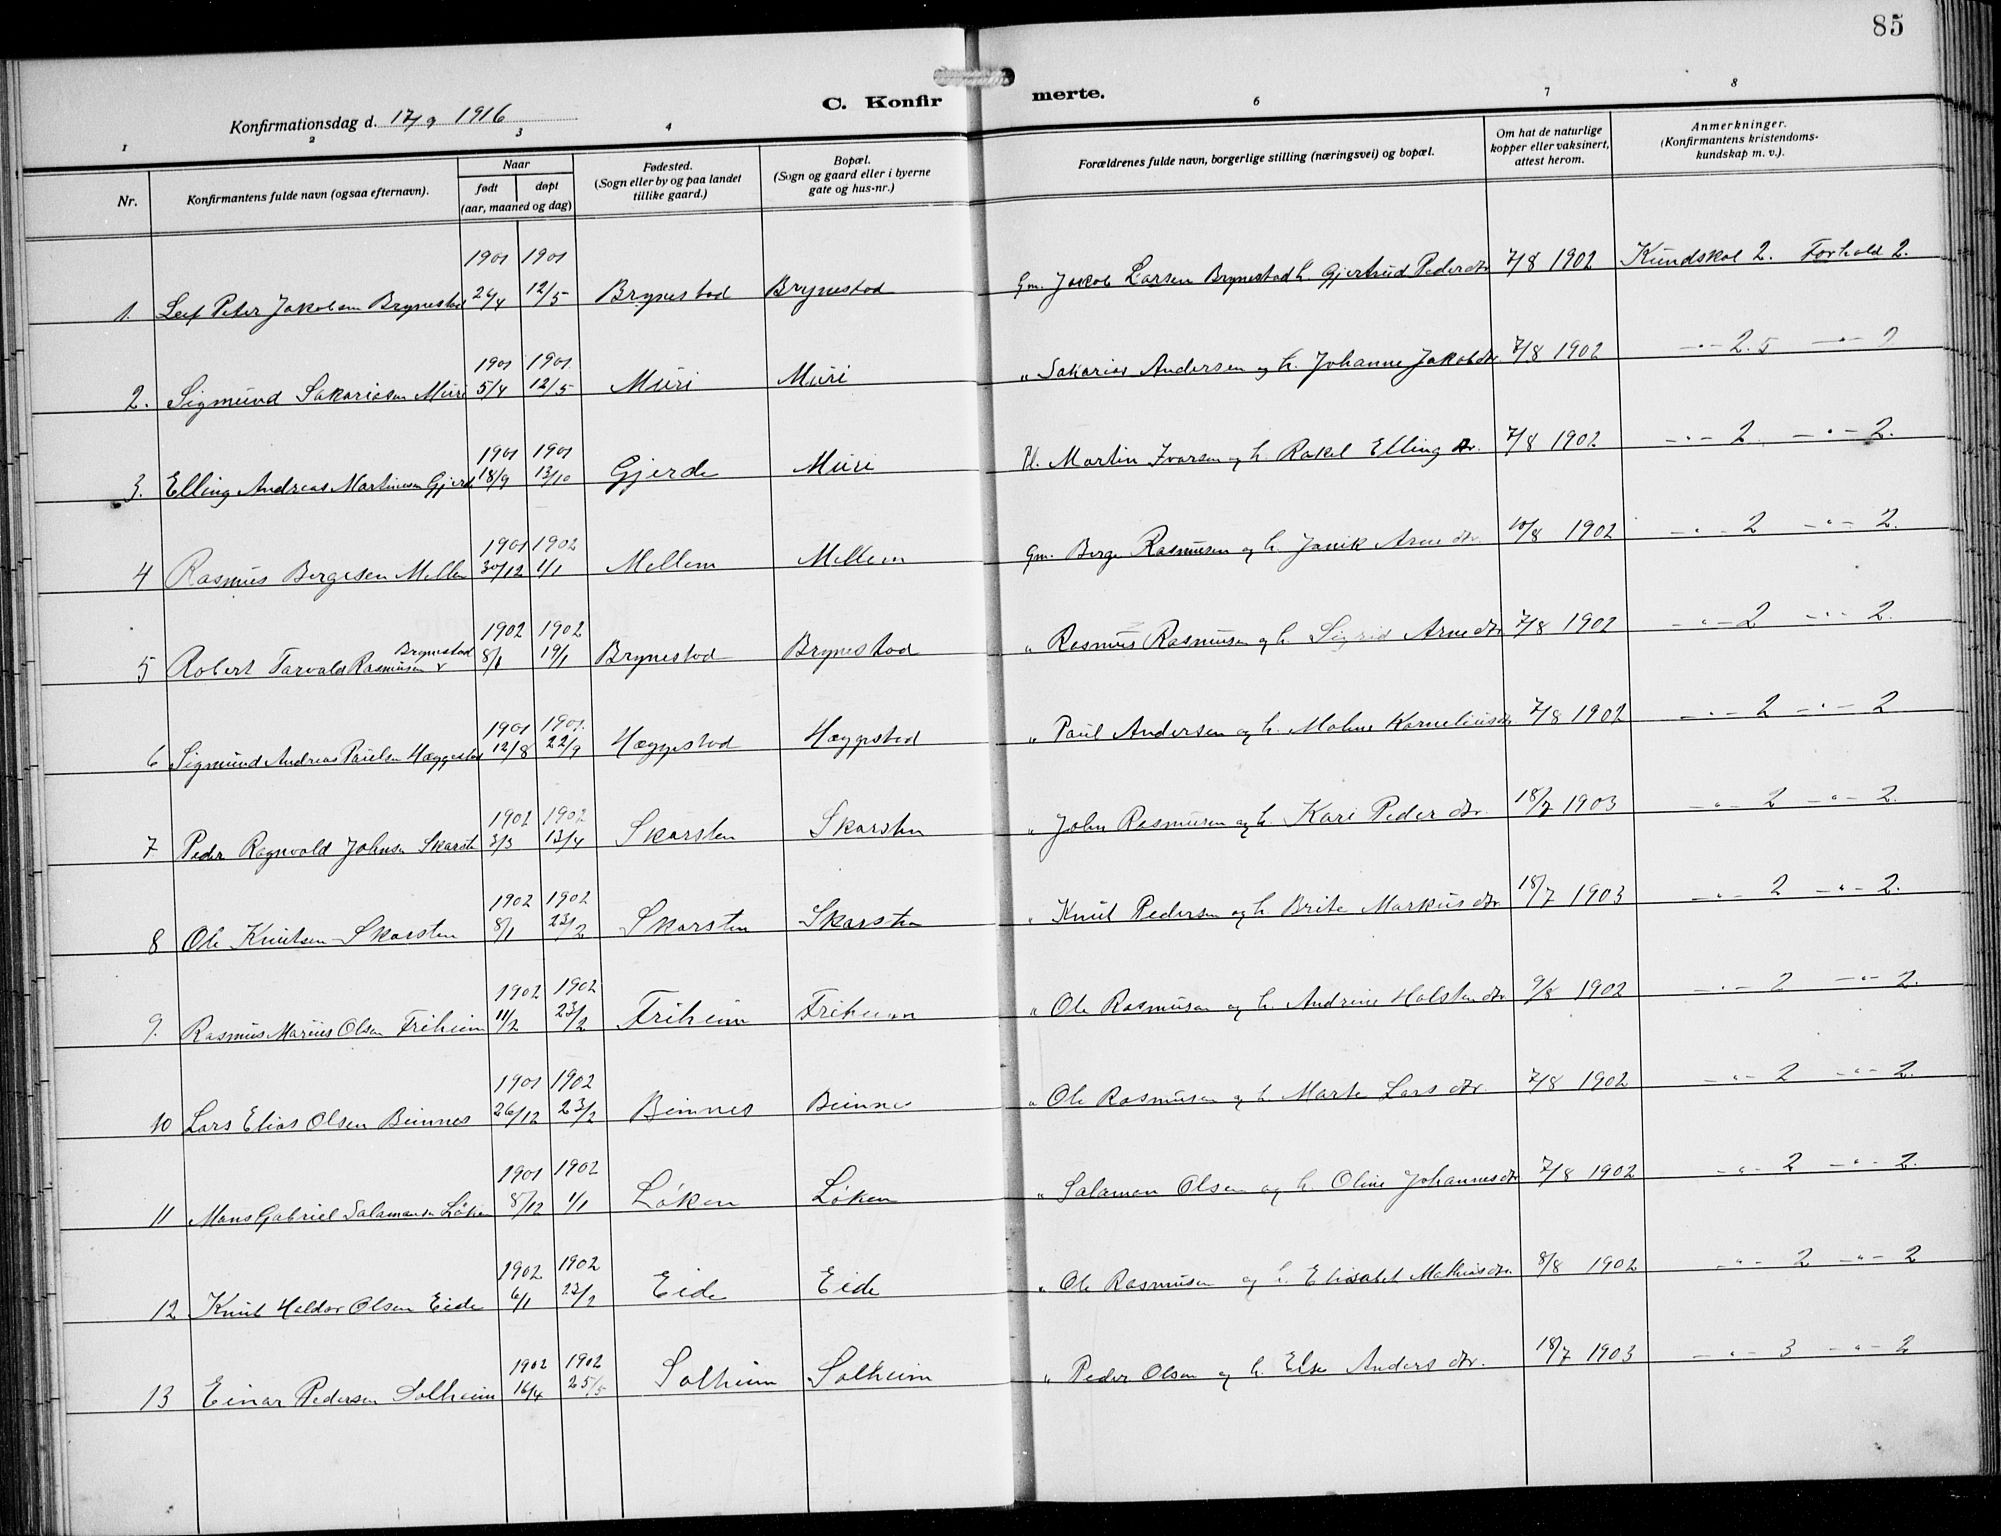 85
C. Konfirmerte.
Konfirmationsdag d. 17/9 1916
1 2 3 4 6 7 8
Nr.
Konfirmantens fulde navn (ogsaa efternavn).
Naar
født døpt
(aar, maaned og dag)
Fødested.
(Sogn eller by og paa landet
tillike gaard.)
Bopæl.
(Sogn og gaard eller i byerne
gate og hus-nr.)
Forældrenes fulde navn, borgerlige stilling (næringsvei) og bopæl.
Om hat de naturlige
kopper eller vaksinert,
attest herom.
Anmerkninger.
(Konfirmantens kristendoms-
kundskap m. v.).
1901 1901
1. Leif Peter Jakobsen Brynestad 24/4 12/5 Brynestad Brynestad Gm. Jakob Larsen Brynestad h. Gjertrud Pedersdtr 7/8 1902 Kundskab 2. Forhold 2.
1901 1901
2. Sigmund Sakariasen Muri 5/4 12/5 Muri Muri " Sakarias Andersen og h. Johanne Jakobsdtr 7/8 1902 -"- 2.5 -"- 2
1901 1901
3. Elling Andreas Martinusen Gjerde 18/9 13/10 Gjerde Muri Pl. Martin Ivarsen og h. Rakel Elling dtr. 7/8 1902 -"- 2. -"- 2.
1901 1902
4 Rasmus Bergesen Mellem 30/12 1/1 Mellem Mellem Gm. Berge Rasmusen og h. Janik Arne dtr. 10/8 1902 -"- 2 -"- 2.
1902 1902
5 Robert Tarvald Rasmusen Brynestad 8/1 19/1 Brynestad Brynestad " Rasmus Rasmusen og h. Sigrid Arnedtr 7/8 1902 -"- 2 -"- 2.
1901 1901
6 Sigmund Andreas Paulsen Hæggestad 12/8 22/9 Hæggestad Hæggestad " Paul Andersen og h. Malene Korneliusdtr 7/8 1902 -"- 2 -"- 2
1902 1902
7 Peder Ragnvald Johnsen Skarsten 3/3 13/4 Skarsten Skarsten " John Rasmusen og h. Kari Peder dtr. 18/7 1903 -"- 2 -"- 2.
1902 1902
8 Ole Knutsen Skarsten 8/1 23/2 Skarsten Skarsten " Knut Pedersen og h. Brite Markusdtr 18/7 1903 -"- 2 -"- 2.
1902 1902
9. Rasmus Marius Olsen Friheim 11/2 23/2 Friheim Friheim " Ole Rasmusen og h. Andrine Halstendtr 9/8 1902 -"- 2 -"- 2.
1901 1902
10 Lars Elias Olsen Beinnes 26/12 23/2 Beinnes Beinnes " Ole Rasmusen og h. Marte Lars dtr. 7/8 1902 -"- 2 -"- 2.
1901 1902
11 Mons Gabriel Salamonsen Løken 8/12 1/1 Løken Løken " Salamon Olsen og h. Oline Johannesdtr 7/8 1902 -"- 2 -"- 2.
1902 1902
12 Knut Haldor Olsen Eide 6/1 23/2 Eide Eide " Ole Rasmusen og h. Elisabet Mathiasdtr. 8/8 1902 -"- 2 -"- 2
1902 1902
13 Einar Pedersen Solheim 16/4 25/5 Solheim Solheim " Peder Olsen og h. Else Anders dtr. 18/7 1903 -"- 3 -"- 2